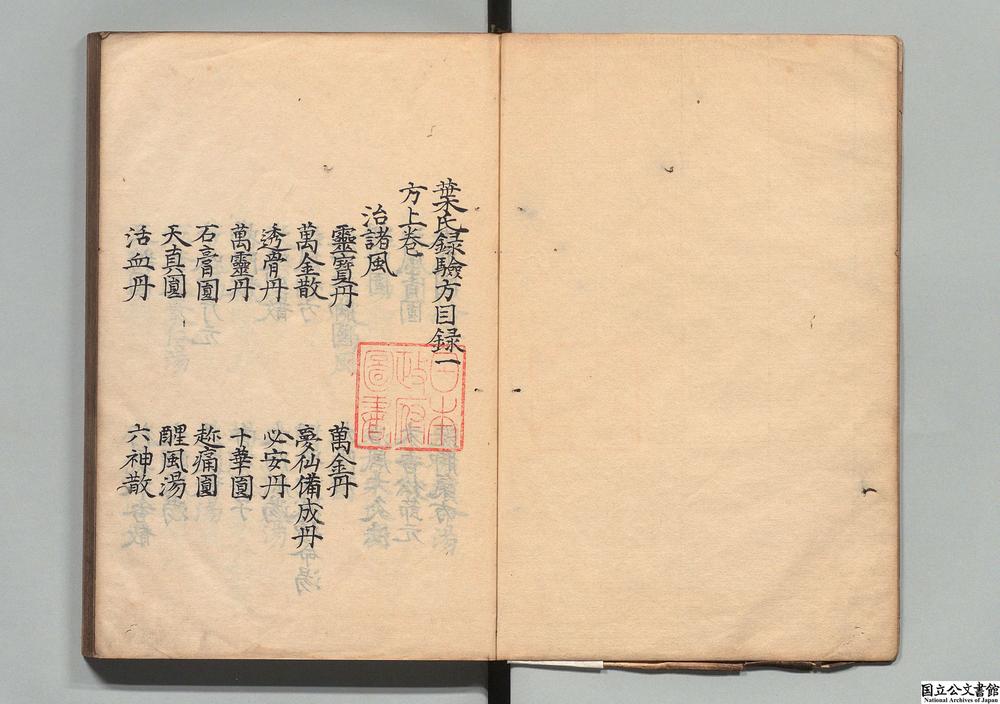 葉氏録驗方目録一
方上卷
治諸風
靈寶丹 萬金丹
萬金散 夢仙備成丹
透骨丹 必安丹
萬靈丹 十華圓
石膏圓 趂痛圓
天真圓 醒風湯
活血丹 六神散
日本
政府
圖書
国立公文書館
National Archives of Japan